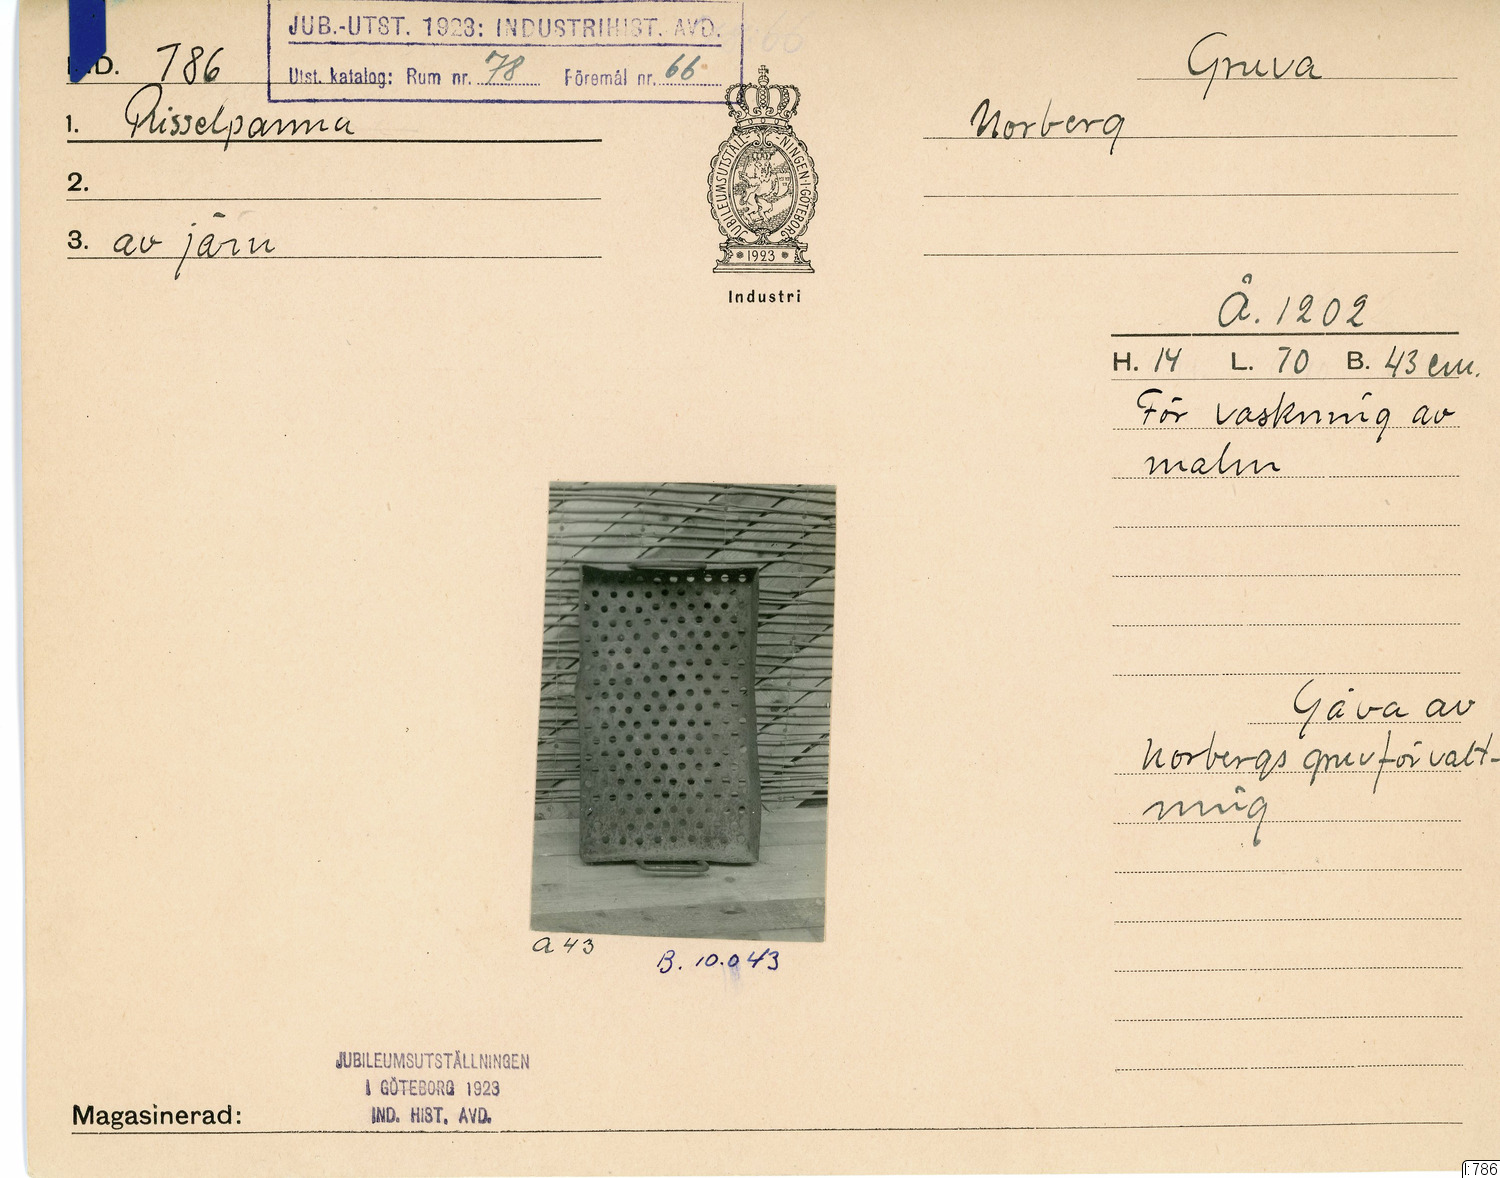 JUB.-UTST. 1923: INDUSTRIHIST. AVD.
Utst. katalog: Rum nr. 78 Föremål nr. 66
IND. 786
1. Risselpanna
2.
3. av järn
JUBILEUMSUTSTÄLLNINGEN I GÖTEBORG
1923
Industri
Gruva
Norberg
Å. 1202
H. 14 L. 70 B. 43 cm.
För vaskning av
malm
Gåva av
Norbergs gruvförvalt-
ning
a 43
B. 10.043
JUBILEUMSUTSTÄLLNINGEN
I GÖTEBORG 1923
IND. HIST. AVD.
Magasinerad:
I:786